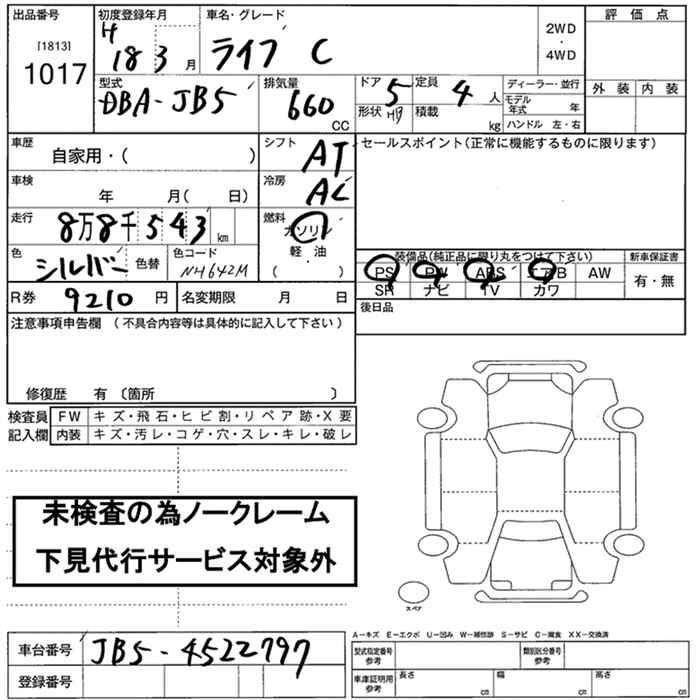 出品番号 [1813] 1017
初度登録年月 H 18 3 月
車名・グレード ライフ C
2WD・4WD
評価点
外装 内装
型式 DBA-JB5
排気量 660 CC
ドア 5
形状 HB
定員 4 人
積載 kg
ディーラー・並行
モデル年式 年
ハンドル 左・右
車歴 自家用・( )
シフト AT
セールスポイント(正常に機能するものに限ります)
車検 年 月( 日)
冷房 AC
走行 8万8千543 km
燃料 ガソリン・軽油・( )
色 シルバー 色替
色コード NH642M
装備品(純正品に限り丸をつけて下さい) 新車保証書
PS PW ABS エアB AW 有・無
SR ナビ TV カワ
R券 9210 円 名変期限 月 日
後日品
注意事項申告欄 (不具合内容等は具体的に記入して下さい)
修復歴 有 〔箇所 〕
検査員記入欄
FW キズ・飛石・ヒビ割・リペア跡・X要
内装 キズ・汚レ・コゲ・穴・スレ・キレ・破レ
未検査の為ノークレーム
下見代行サービス対象外
スペア
A−キズ E−エクボ U−凹み W−補修跡 S−サビ C−腐食 XX−交換済
車台番号 JB5-4522797
登録番号
型式指定番号参考 類別区分番号参考
車庫証明用参考 長さ cm 幅 cm 高さ cm